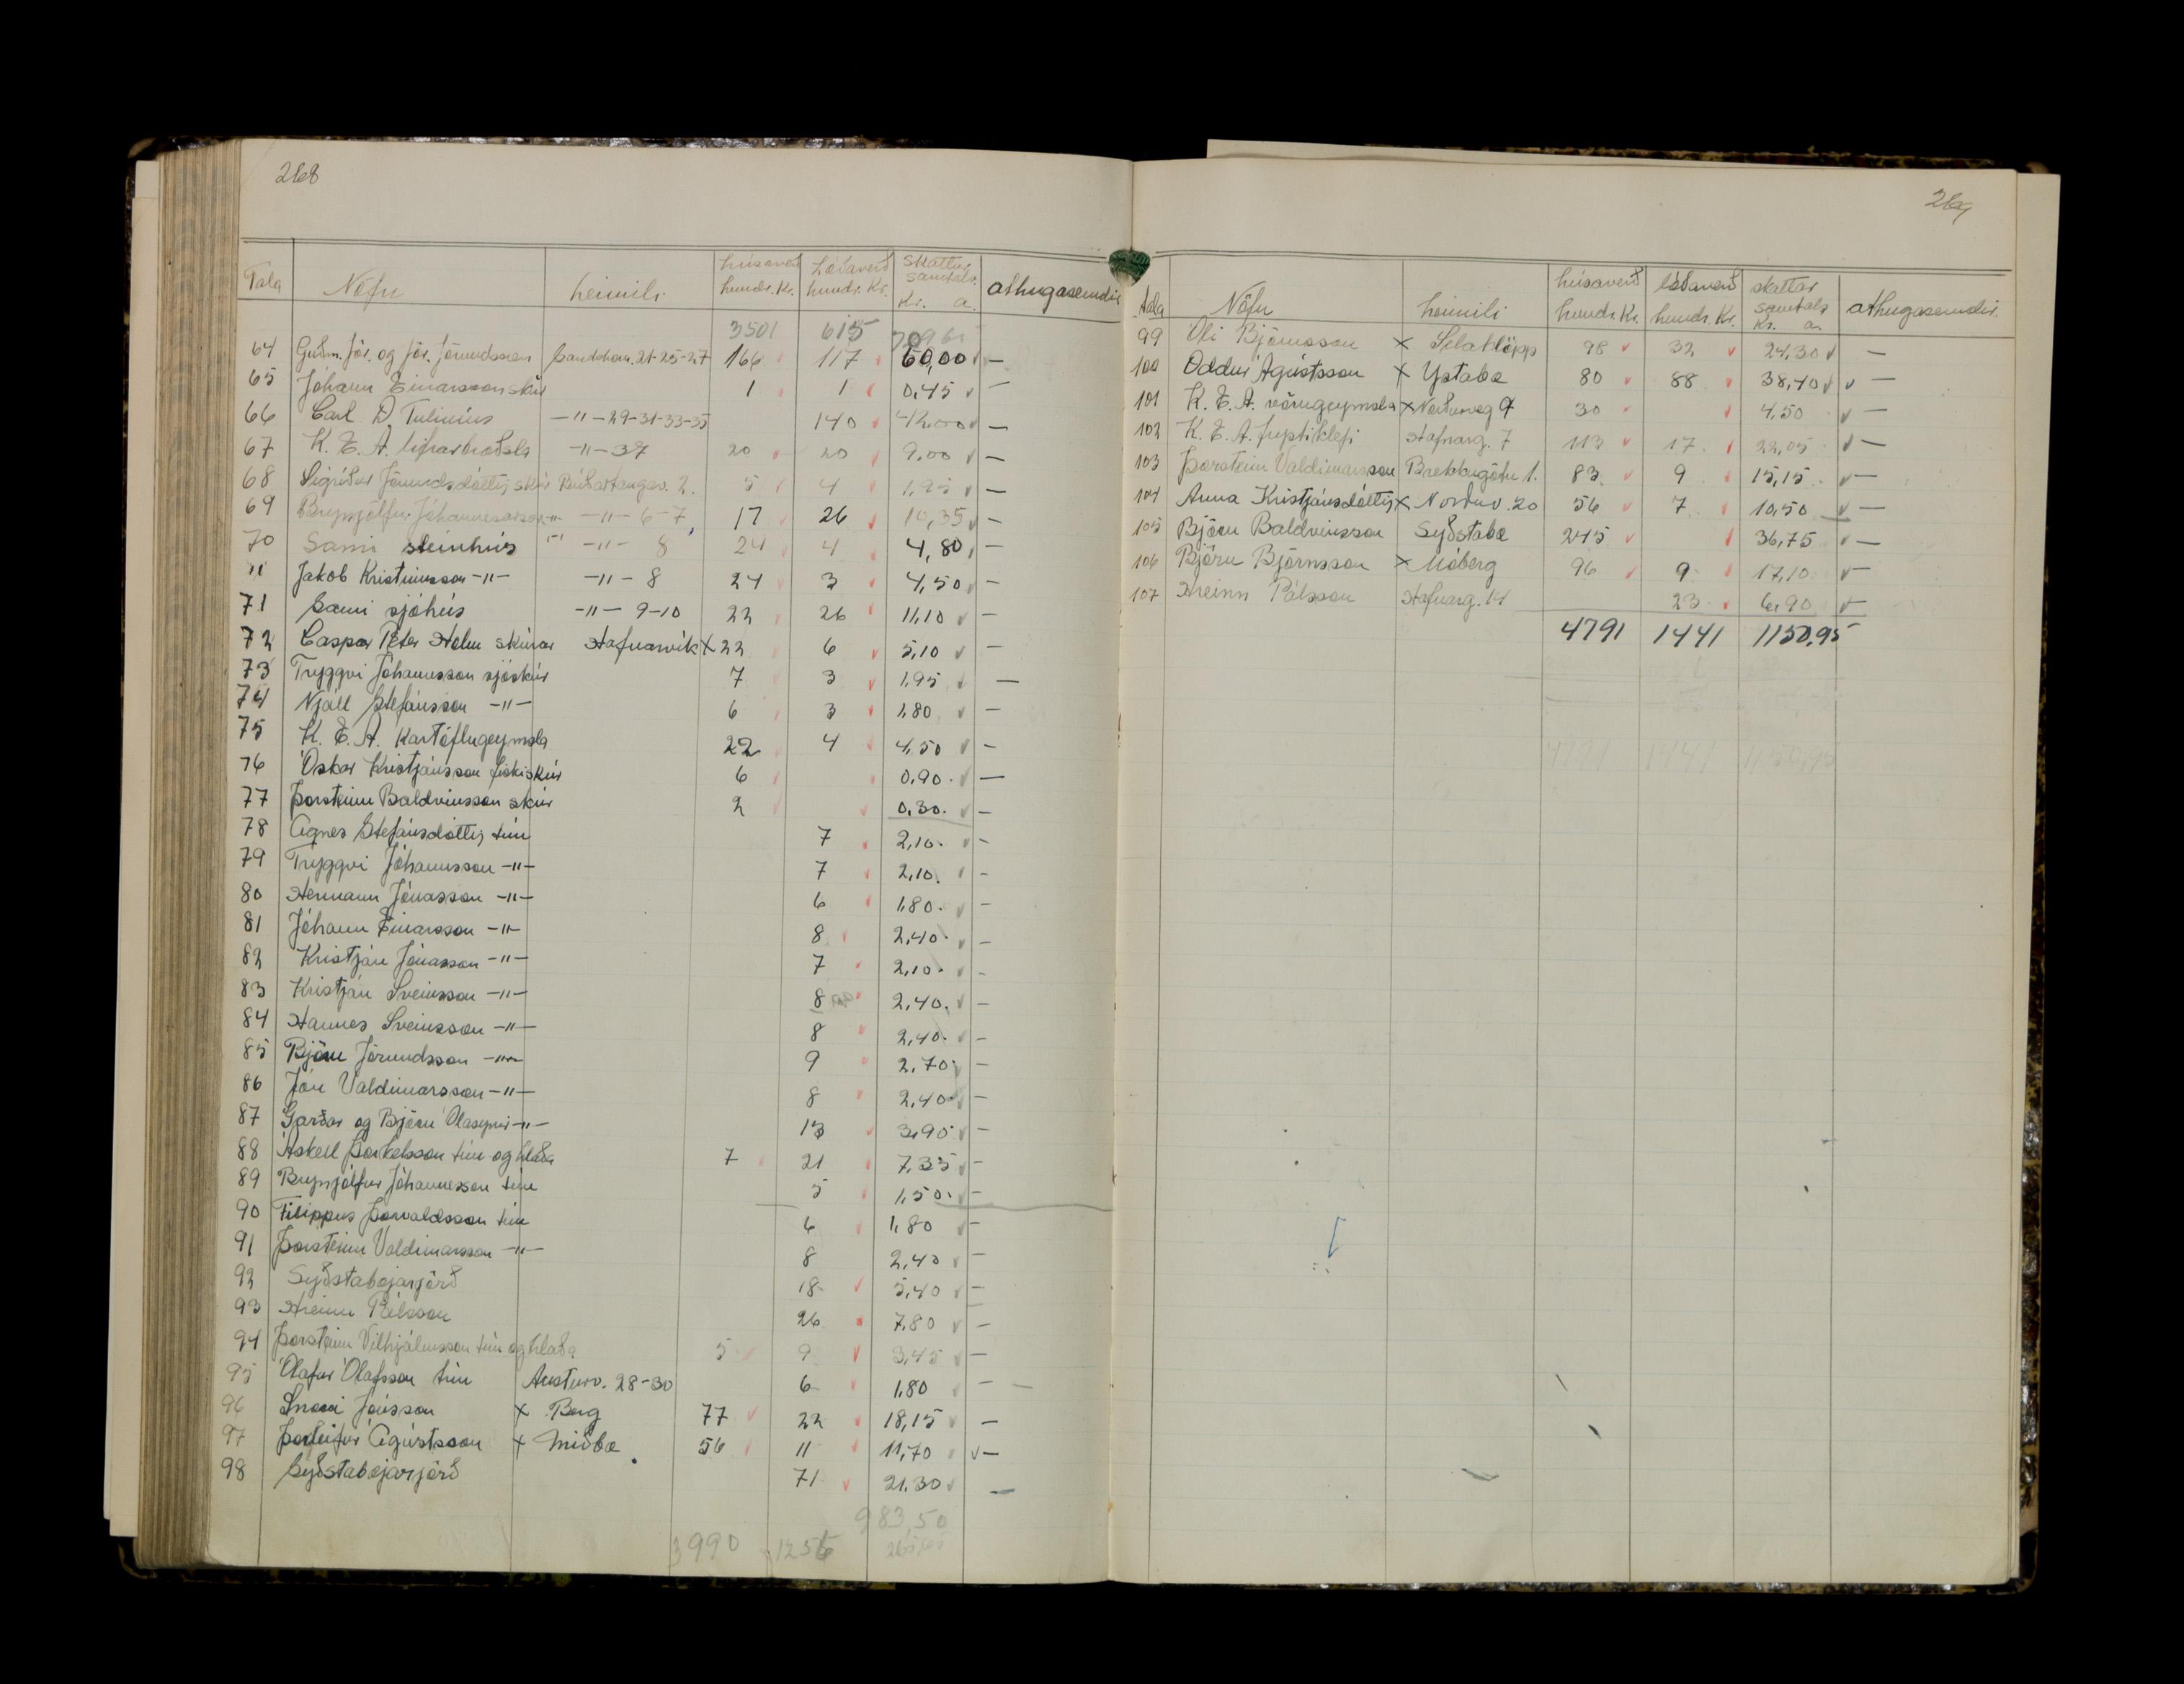 268
Tala Nöfn heimili húsaverð hundr. Kr. Lóðaverð hundr. Kr. Skattur samtals Kr. a. athugasemdir
3501 615
64 Guðm. Jör. og Jör. Jörundssonar Sandshorn. 21-25-27 166 117 60,00 —
65 Jóhann Einarsson skúr 1 1 0,45 —
66 Carl D. Tulinius —"— 29-31-33-35 140 42,00 —
67 K. E. A. lifrarbræðsla —"— 37 20 20 9,00 —
68 Sigríður Jörundsdóttir, skúr 2. 5 4 1,95 —
69 Brynjólfur Jóhannesson —"— —"— 6-7 17 26 10,35 —
70 Sami steinhús —"— 8 24 4 4,80 —
" Jakob Kristinsson —"— —"— 8 24 3 4,50 —
71 Sami sjóhús —"— 9-10 22 26 11,10 —
72 Caspar Peter Holm skúrar Hafnarvík X 22 6 5,10 —
73 Tryggvi Jóhannsson sjóskúr 7 3 1,95 —
74 Njáll Stefánsson —"— 6 3 1,80 —
75 K. E. A. Kartöflugeymsla 22 4 4,50 —
76 Óskar Kristjánsson fiskiskúr 6 0,90 —
77 Þorsteinn Baldvinsson skúr 2 0,30 —
78 Agnes Stefánsdóttir, tún 7 2,10 —
79 Tryggvi Jóhannsson —"— 7 2,10 —
80 Hermann Jónasson —"— 6 1,80 —
81 Jóhann Einarsson —"— 8 2,40 —
82 Kristján Jónasson —"— 7 2,10 —
83 Kristján Sveinsson —"— 8 2,40 —
84 Hannes Sveinsson —"— 8 2,40 —
85 Björn Jörundsson —"— 9 2,70 —
86 Jón Valdimarsson —"— 8 2,40 —
87 Garðar og Björn Ólasynir —"— 13 3,90 —
88 Áskell Þorkelsson tún og hlaða 7 21 7,35 —
89 Brynjólfur Jóhannesson tún 5 1,50 —
90 Filippus Þorvaldsson tún 6 1,80 —
91 Þorsteinn Valdimarsson —"— 8 2,40 —
92 Syðstabæjarjörð 18 5,40 —
93 Hreinn Pálsson 26 7,80 —
94 Þorsteinn Vilhjálmsson tún og hlaða 5 9 3,45 —
95 Ólafur Ólafsson tún Austurv. 28-30 6 1,80 —
96 Snorri Jónsson X Borg 77 22 18,15 —
97 Þorleifur Ágústsson X Miðbæ 56 11 11,70 —
98 Syðstabæjarjörð 71 21,30 —
983,50
3990 1256
269
Tala Nöfn heimili húsaverð hundr. Kr. lóðaverð hundr. Kr. skattar samtals Kr. a. athugasemdir.
99 Óli Björnsson X Selaklöpp 98 32 24,30 —
100 Oddur Ágústsson X Ystabæ 80 88 38,40 —
101 K. E. A. vörugeymsla X Norðurveg 9 30 4,50 —
102 K. E. A. frystiklefi Hafnarg. 7 113 17 22,05 —
103 Þorsteinn Valdimarsson Brekkugötu 1. 83 9 15,15 —
104 Anna Kristjánsdóttir X Norðurv. 20 56 7 10,50 —
105 Björn Baldvinsson Syðstabæ 245 36,75 —
106 Björn Björnsson X Móberg 96 9 17,10 —
107 Hreinn Pálsson Hafnarg. 14 23 6,90 —
4791 1441 1150,95
4791 1441 1150,95